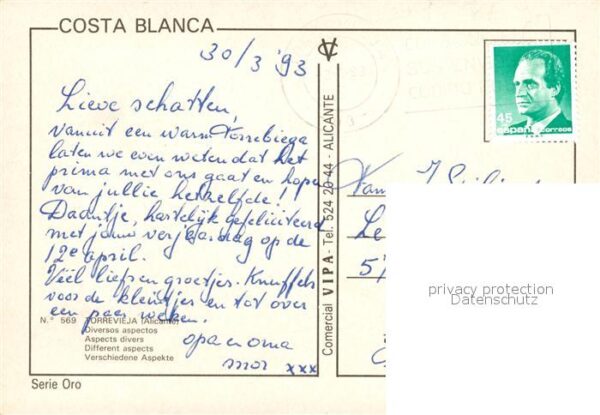 COSTA BLANCA
30/3 '93
Lieve schatten,
vanuit een warm Torrebiega
laten we even weten dat het
prima met ons gaat en hopen
van jullie hetzelfde!!
Daantje, hartelijk gefeliciteerd
met jouw verjaardag op de
12e april.
Véél liefs en groetjes. Knuffels
voor de kleintjes en tot over
een paar weken.
opa en oma
xxx
N.º 569 TORREVIEJA (Alicante)
Diversos aspectos
Aspects divers
Different aspects
Verschiedene Aspekte
Serie Oro
Comercial VIPA - Tel. 524 20 44 - ALICANTE
45
españa correos
privacy protection
Datenschutz